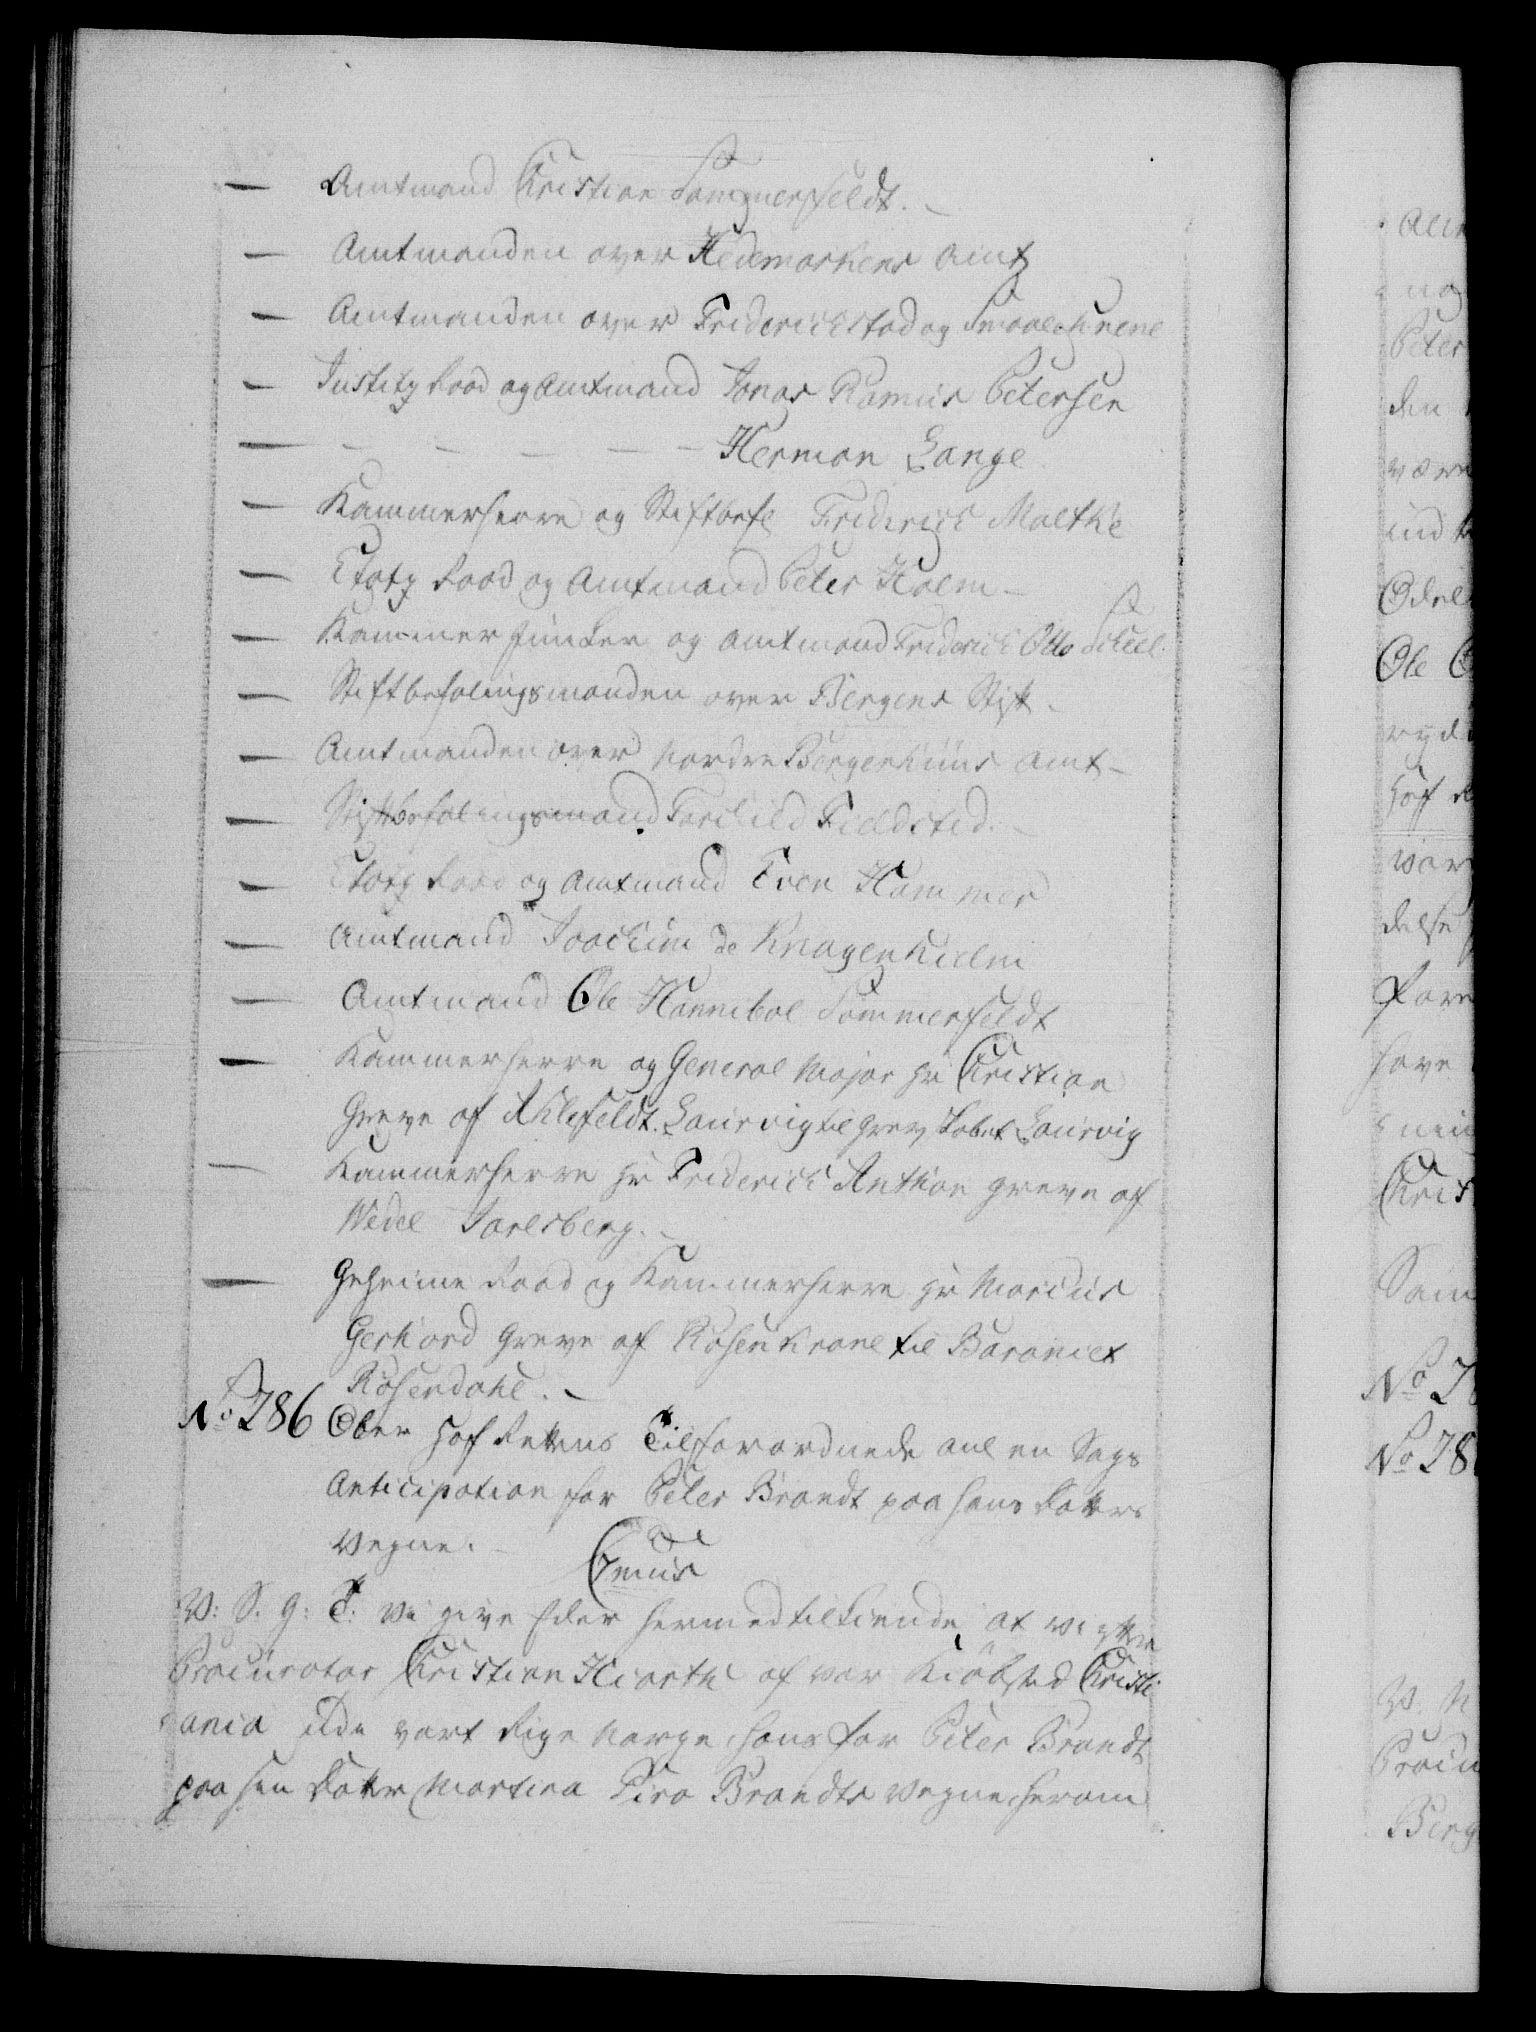 — Amtmand Christian Sommerfeldt. —
— Amtmanden over Hedemarkens Amt
— Amtmanden over Friderichstad og Smaalehnene
— Justitz Raad og Amtmand Jonas Ramus Petersen
— — — — — — Herman Lange
— Kammerherre og Stiftbefl Friderich Moltke
— Etatz Raad og Amtmand Peter Holm —
— Kammerjunker og Amtmand Friderich Otto Scheel.
— Stiftbefalingsmanden over Bergens Stift.
— Amtmanden over Nordre Bergenhuus Amt —
— Stiftbefalingsmand Torchild Fieldsted. —
— Etatz Raad og Amtmand Even Hammer
— Amtmand Joachim de Knagenhielm
— Amtmand Ole Hannibal Sommerfeldt
— Kammerherre og General Major Hr Christian
Greve af Ahlefeldt Laurvig til Grevskabet Laurvig
— Kammerherre Hr Friderich Anthon Greve af
Wedel Jarlsberg. —
— Geheime Raad og Kammerherre Hr Marcus
Gerhard Greve af Rosenkrone til Baroniet
Rosendahl. —
No. 786 Ober Hof Rettens Tilforordnede anl en Sags
Anticipation for Peter Brandt paa hans Datters
Vegne. —
Cmus
W: S. G: T: Vi give Eder hermed tilkiende, at
Procurator Christian Hiorth af vor Kiöbsted Christi
ania udi vort Rige Norge, hans for Peter Brandt
paa sin Datter Martina Brandts Vegne herom